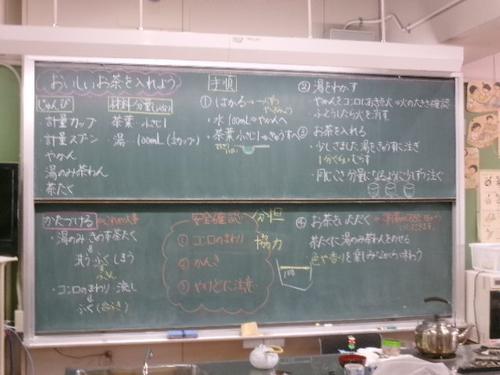 おいしいお茶を入れよう
じゅんび
計量カップ
計量スプーン
やかん
湯のみ茶わん
茶たく
材料・分量(1人分)
茶葉 小さじ1
湯 100mL
手順
① はかる
・水 100mL→やかんへ
・茶葉 小さじ1→きゅうすへ
② 湯をわかす
やかんをコンロにおき点火→火の大きさ確認
ふっとうしたら火を消す
③ お茶を入れる
・少しさました湯をきゅうすに注ぎ
1分くらいむらす
・同じこさ、分量になるように少しずつ注ぐ
かたづける
・湯のみ きゅうす 茶たく
洗う ふく しまう
・コンロのまわり 流し
ふく(台ふき)
安全確認
① コンロのまわり
② かんき
③ やけどに注意
分担
協力
④ お茶をいただく
茶たくに湯のみ茶わんをのせる
色や香りを楽しみながら味わう